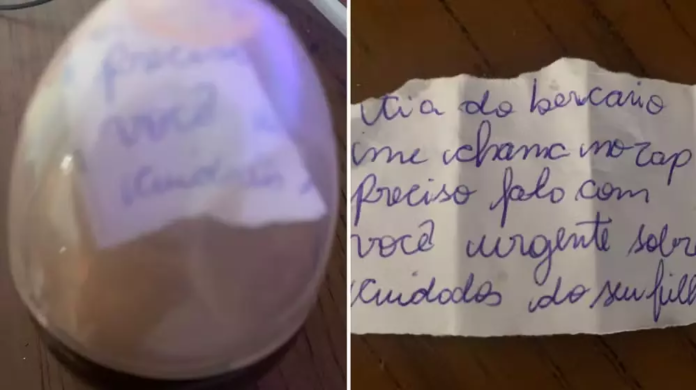 preciso
você
cuidados
tia do bercario
me chama no zap
preciso falo com
você urgente sobre
cuidados do seu filh